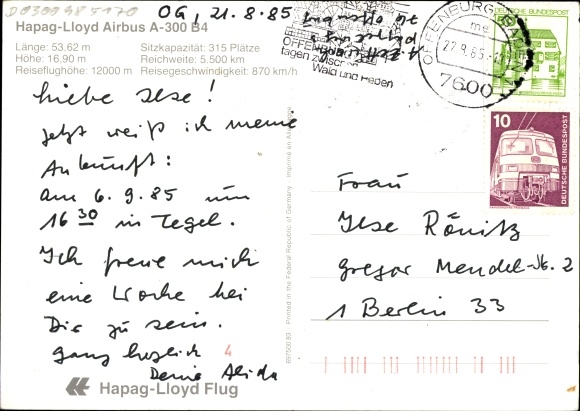 D0309985170
OG, 21.8.85
Hapag-Lloyd Airbus A-300 B4
Länge: 53.62 m Sitzkapazität: 315 Plätze
Höhe: 16,90 m Reichweite: 5.500 km
Reiseflughöhe: 12000 m Reisegeschwindigkeit: 870 km/h
Liebe Ilse!
Jetzt weiß ich meine
Ankunft:
am 6.9.85 um
16 30 in Tegel.
Ich freue mich
eine Woche bei
Dir zu sein.
Ganz herzlich 4
Deine Alida
Hapag-Lloyd Flug
Printed in the Federal Republic of Germany
OFFENBURG
Tagen zwischen
Wald und Reben
OFFENBURG
22.8.85
7600
DEUTSCHE BUNDESPOST
10
DEUTSCHE BUNDESPOST
Frau
Ilse Rönitz
Gregor Mendel-Str. 2
1 Berlin 33